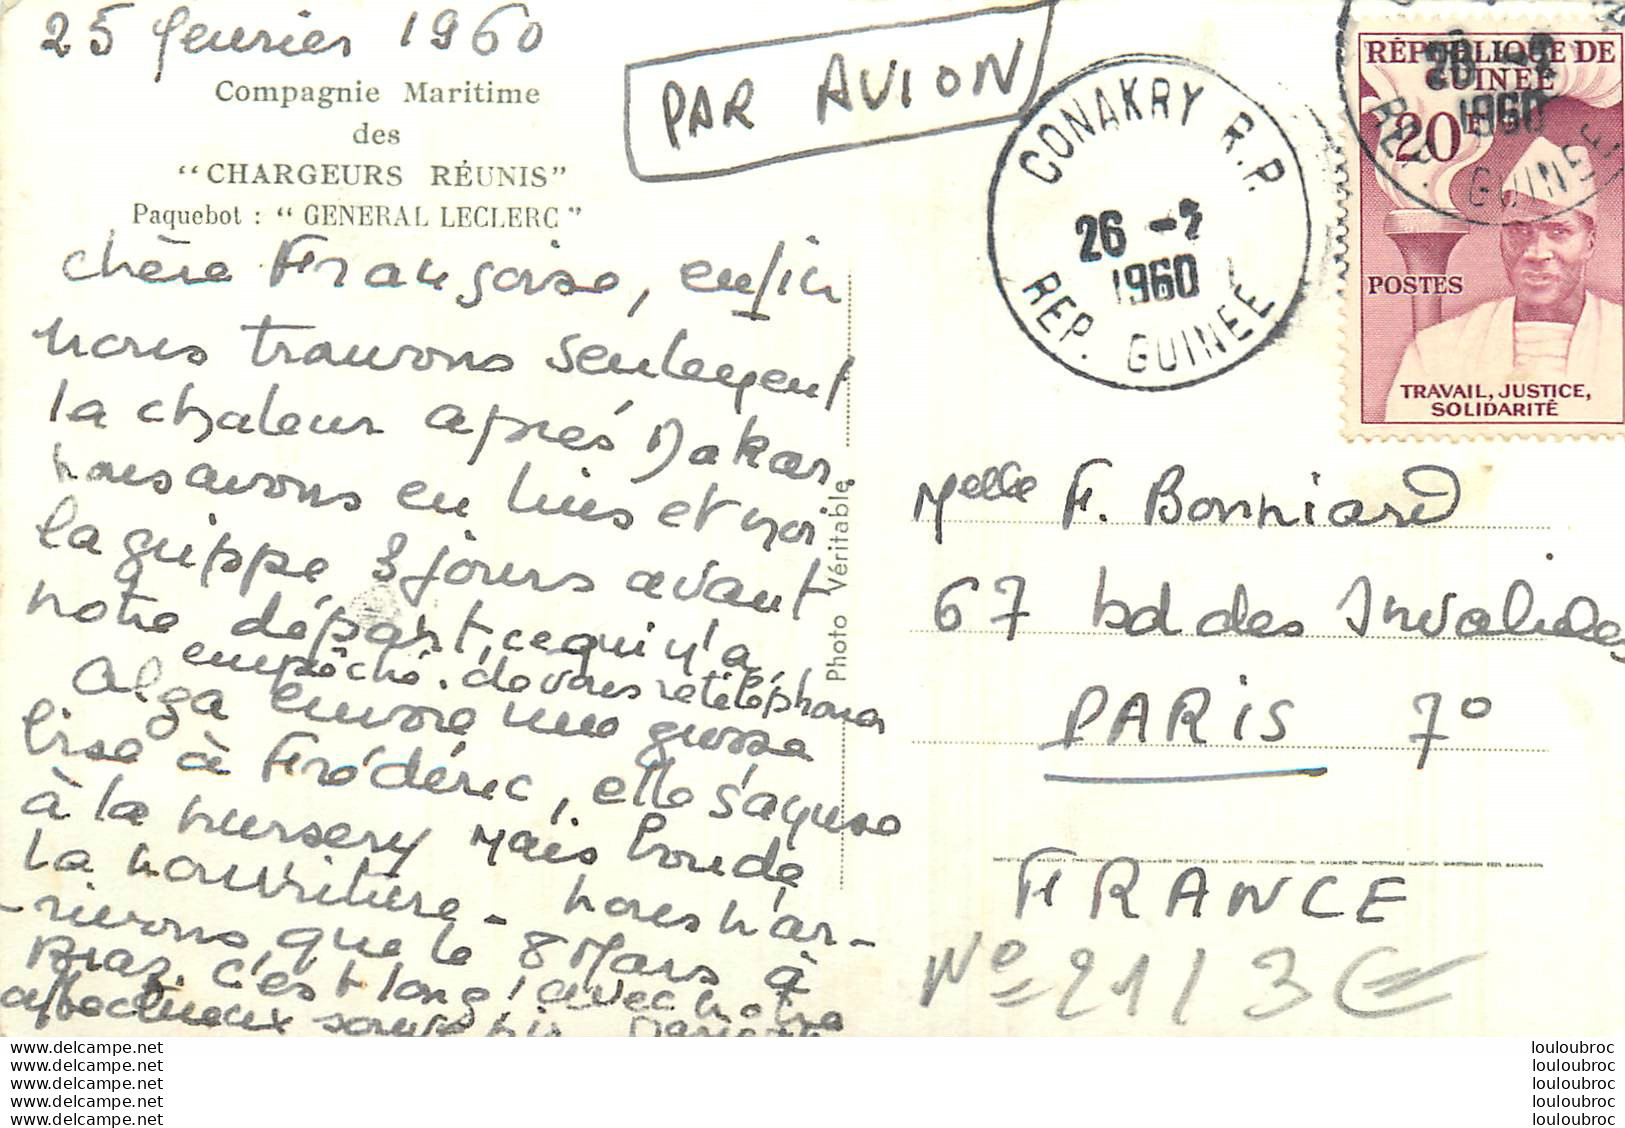 25 fevrier 1960
Compagnie Maritime
des
"CHARGEURS RÉUNIS"
Paquebot : "GENERAL LECLERC"
PAR AVION
CONAKRY R.P.
26 -2
1960
REP. GUINEE
RÉPUBLIQUE DE
GUINÉE
20F
POSTES
TRAVAIL, JUSTICE,
SOLIDARITÉ
26 -2
1960
REP. GUINEE
chère Françoise, enfin
nous trouvons seulement
la chaleur après Dakar,
nous avons eu et moi
la grippe 3 jours avant
notre départ, ce qui m'a
empêché de vous retéléphoner
Olga envoie une grosse
bise à Frédéric, elle s'amuse
à la nursery mais boude
la nourriture - nous n'ar-
-rivons que le 8 Mars à
c'est long! avec notre
affectueux souvenir
Photo Véritable
Melle F. Bonniard
67 bd des Invalides
PARIS 7º
FRANCE
Nº 21 / 3€
www.delcampe.net
www.delcampe.net
www.delcampe.net
www.delcampe.net
www.delcampe.net
louloubroc
louloubroc
louloubroc
louloubroc
louloubroc